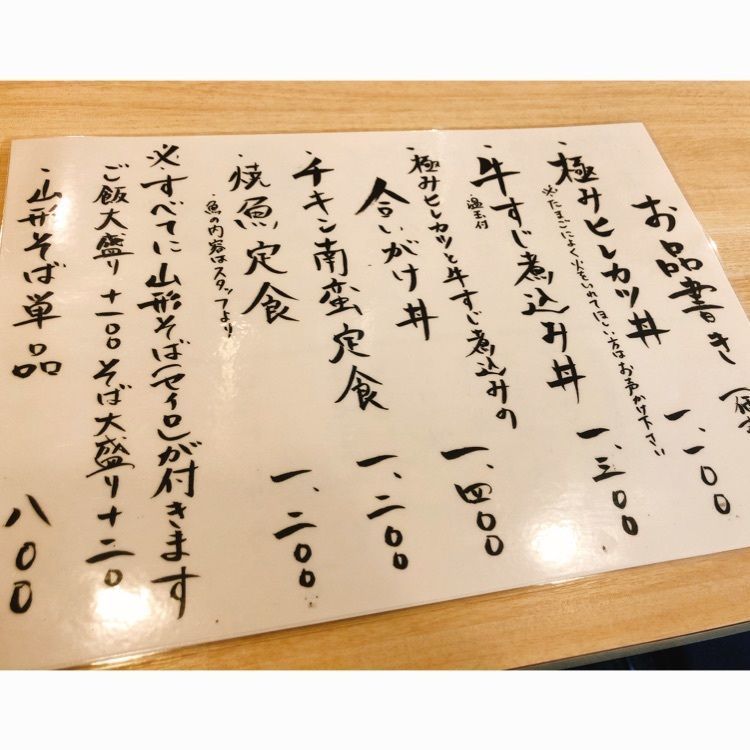 お品書き
・極みヒレカツ丼 一、一〇〇
※たまごによく火をいれてほしい方はお声かけ下さい
・牛すじ煮込み丼 一、三〇〇
温玉付
・極みヒレカツと牛すじ煮込みの
合いがけ丼 一、四〇〇
・チキン南蛮定食 一、二〇〇
・焼魚定食 一、二〇〇
・魚の内容はスタッフより
※すべてに山形そば(セイロ)が付きます
ご飯大盛り+一〇〇 そば大盛り+二〇
・山形そば単品 八〇〇